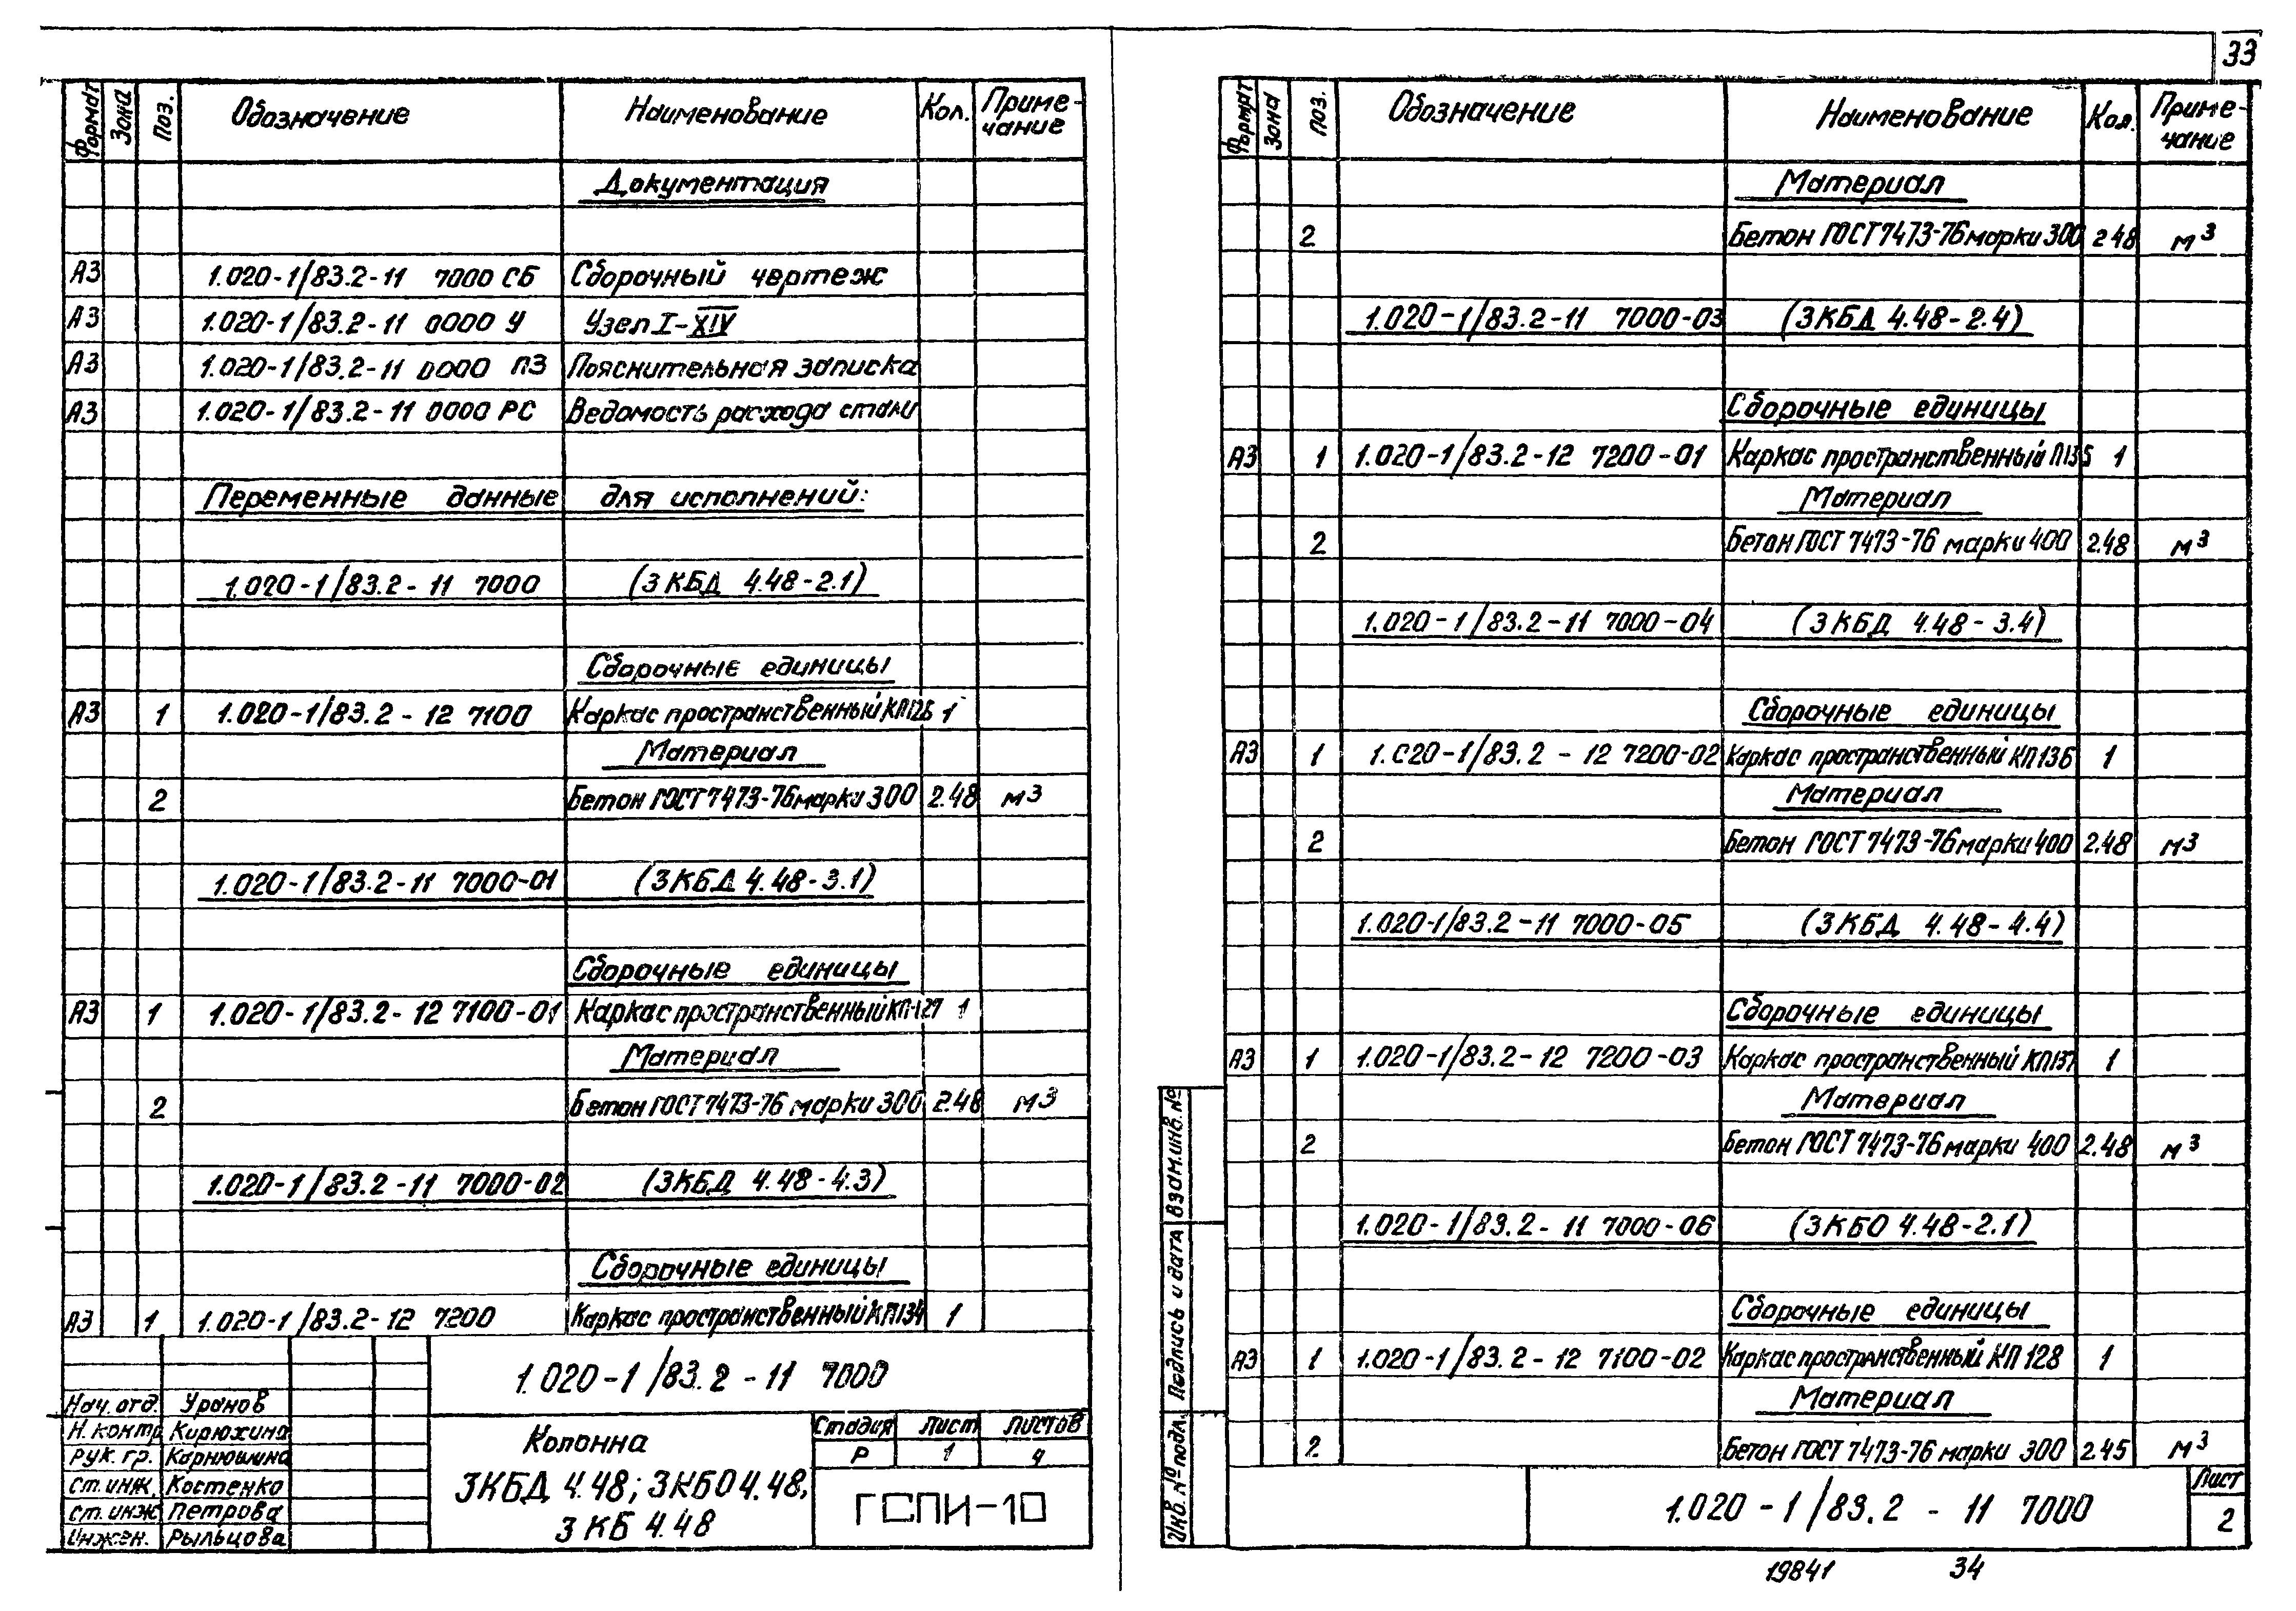 33
Формат Зона Поз. Обозначение Наименование Кол. Приме-чание
Документация
А3 1.020-1/83.2-11 7000 СБ Сборочный чертеж
А3 1.020-1/83.2-11 0000 У Узел I-XIV
А3 1.020-1/83.2-11 0000 ПЗ Пояснительная записка
А3 1.020-1/83.2-11 0000 РС Ведомость расхода стали
Переменные данные для исполнений:
1.020-1/83.2-11 7000 (3КБД 4.48-2.1)
Сборочные единицы
А3 1 1.020-1/83.2-12 7100 Каркас пространственный КП126 1
Материал
2 Бетон ГОСТ 7473-76 марки 300 2.48 м3
1.020-1/83.2-11 7000-01 (3КБД 4.48-3.1)
Сборочные единицы
А3 1 1.020-1/83.2-12 7100-01 Каркас пространственный КП-127 1
Материал
2 Бетон ГОСТ 7473-76 марки 300 2.48 м3
1.020-1/83.2-11 7000-02 (3КБД 4.48-4.3)
Сборочные единицы
А3 1 1.020-1/83.2-12 7200 Каркас пространственный КП134 1
1.020-1/83.2-11 7000
Нач. отд. Уранов
Н. контр Кирюхина
Рук. гр. Карнюшина
ст. инж. Костенко
ст. инж Петрова
Инжен. Рыльцова
Колонна
3КБД 4.48; 3КБО 4.48,
3 КБ 4.48
Стадия Лист Листов
Р 1 4
ГСПИ-10
Формат Зона Поз. Обозначение Наименование Кол. Приме-чание
Материал
2 Бетон ГОСТ 7473-76 марки 300 2 48 м3
1.020-1/83.2-11 7000-03 (3КБД 4.48-2.4)
Сборочные единицы
А3 1 1.020-1/83.2-12 7200-01 Каркас пространственный П135 1
Материал
2 Бетон ГОСТ 7473-76 марки 400 2.48 м3
1.020-1/83.2-11 7000-04 (3КБД 4.48-3.4)
Сборочные единицы
А3 1 1.020-1/83.2-12 7200-02 Каркас пространственный КП136 1
Материал
2 Бетон ГОСТ 7473-76 марки 400 2.48 м3
1.020-1/83.2-11 7000-05 (3КБД 4.48-4.4)
Сборочные единицы
А3 1 1.020-1/83.2-12 7200-03 Каркас пространственный КП137 1
Материал
2 Бетон ГОСТ 7473-76 марки 400 2.48 м3
1.020-1/83.2-11 7000-06 (3КБО 4.48-2.1)
Сборочные единицы
А3 1 1.020-1/83.2-12 7100-02 Каркас пространственный КП 128 1
Материал
2 Бетон ГОСТ 7473-76 марки 300 2.45 м3
Инв. № подл. Подпись и дата Взам. инв. №
1.020-1/83.2-11 7000
Лист
2
19841 34